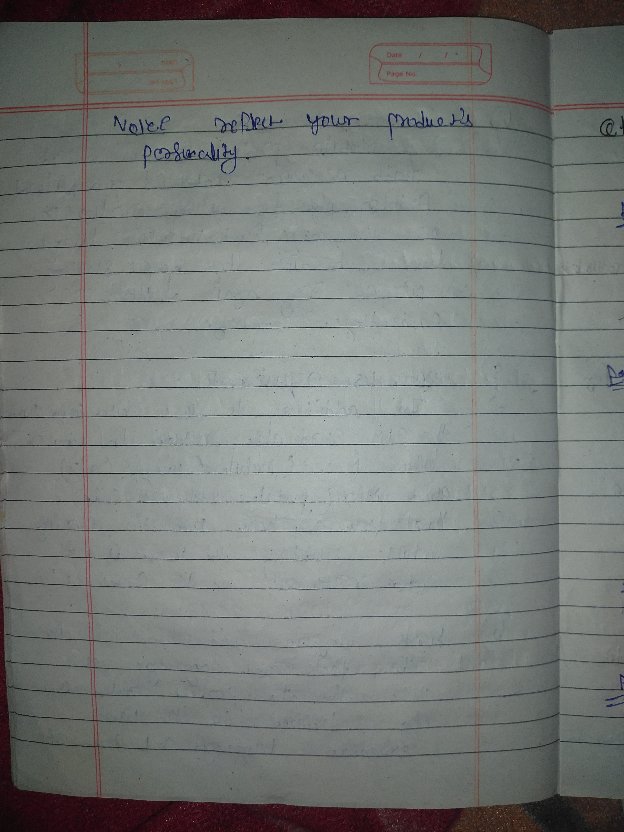 Date / /
Page No.
Voice reflect your product's
personality.